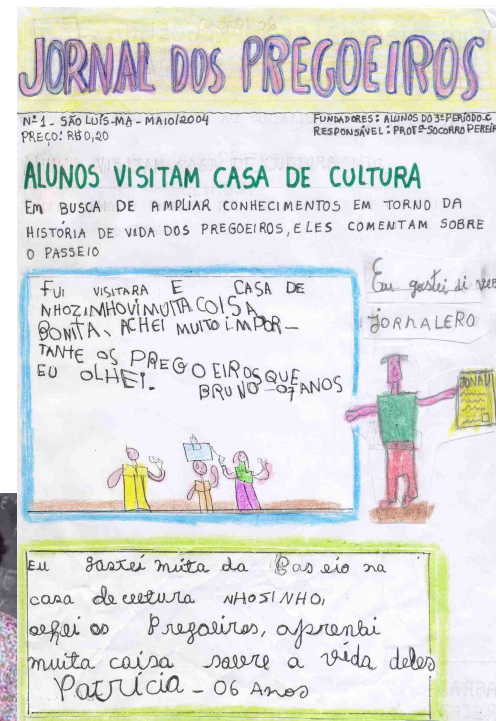 JORNAL DOS PREGOEIROS
Nº 1 - SÃO LUÍS-MA - MAIO/2004
PREÇO: R$0,20
FUNDADORES: ALUNOS DO 3º PERÍODO.C
RESPONSÁVEL: PROFª SOCORRO PEREIR
ALUNOS VISITAM CASA DE CULTURA
EM BUSCA DE AMPLIAR CONHECIMENTOS EM TORNO DA
HISTÓRIA DE VIDA DOS PREGOEIROS, ELES COMENTAM SOBRE
O PASSEIO
FUI VISITARA E CASA DE
NHOZINHOVIMUITA COISA
BONITA, ACHEI MUITO IMPOR-
TANTE OS PREGOEIROS QUE
EU OLHEI.
BRUNO - 07 ANOS
Eu gostei di
JORNALERO
JONAU
Eu gostei muita da Pas eio na
casa de cultura NHOSINHO,
achei os Pregoeiros, aprenbi
muita caisa sobre a vida deles
Patrícia - 06 Anos